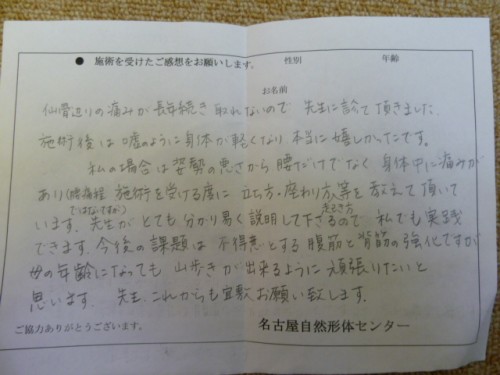 ● 施術を受けたご感想をお願いします。 性別 年齢
お名前
仙骨辺りの痛みが長年続き取れないので 先生に診て頂きました。
施術後は嘘のように身体が軽くなり 本当に嬉しかったです。
私の場合は姿勢の悪さから 腰だけでなく 身体中に痛みが
あり 施術を受ける度に 立ち方・座わり方等を教えて頂いて
ではないですが 歩き方
います。先生がとても分かり易く説明して下さるので 私でも実践
できます。今後の課題は 不得意とする腹筋と背筋の強化ですが
母の年齢になっても 山歩きが出来るように頑張りたいと
思います。先生、これからも宜敷お願い致します。
ご協力ありがとうございます。 名古屋自然形体センター